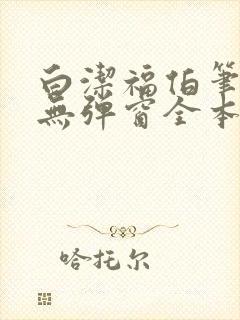 白潔福伯筆
無彈窗全本
哈托尔